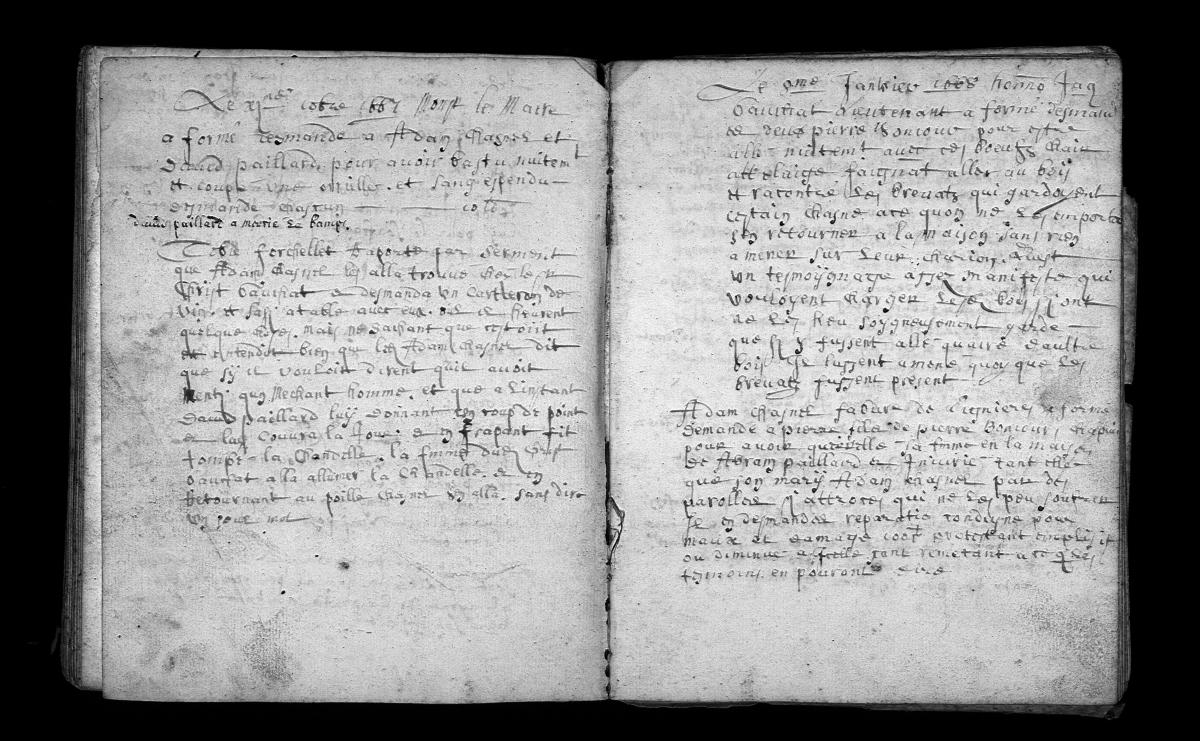 Le xj me 10bre 1667 Mons.r le Maire
a formé desmande a Adam Chasnel et
David paillard, pour avoir bastu nuitemt
et coupé une et sang espendu
desmande chascun
david paillard a la bampt.
Tobie forchellet raporte par serment
que Adam Chasnel les alla trouvé chez le Sr
Christ Gauchat & desmanda un Carteron de
vin et sass. atable avec eux. & Il heurent
quelque mais ne sachant que cestoit
entendoit bien que led Adam Chasnel dit
que sy il vouloit dirent quil avoit
menti quun Mechant homme. et que a Linstant
David paillard luy donnant un coup de point
& luy Couvra la Joue. & en frapant fit
tombé la Chandelle. la femme dud Christ
Gauchat alla allumer la Chandelle. & en
Retournant au poille Chasnel sen alla. sans dire
un seul mot
Le 9me Janvier 1668 honno. Jaq
Gauchat Lieutenant a formé desmande
de deux pierre Bonjour pour estre
allé nuitemt avec ces boeufz
attelaige faignat aller au boys
et racontré les brevatz qui gardoyent
certain chasne ace quon ne les emporta
sen retourner a la maison sans rien
amener sur leur charion. &
un tesmoignage assez manifeste qui
vouloyent charger lesd. boys si ont
ne les heu soygneusement gardé
que sy y fussent allé quairé daultre
boys Ils lussent amené quoy que les
brevatz fussent present
Adam Chasnel favure de Lignieres a formé
demande a pierre filz de pierre Bonjour
pour avoir querellé sa femme en la maison
de Abram paillard & Injurié tant elle
que son marij Adam Chasnel par des
parolles sy attroces qui ne les peu souffrir
Il en desmande reparatio condigne pour
maux et damage 100 lt protestant emplifié
ou diminué a Icelle sant remetant a ce que les
tesmoins en pouront dire